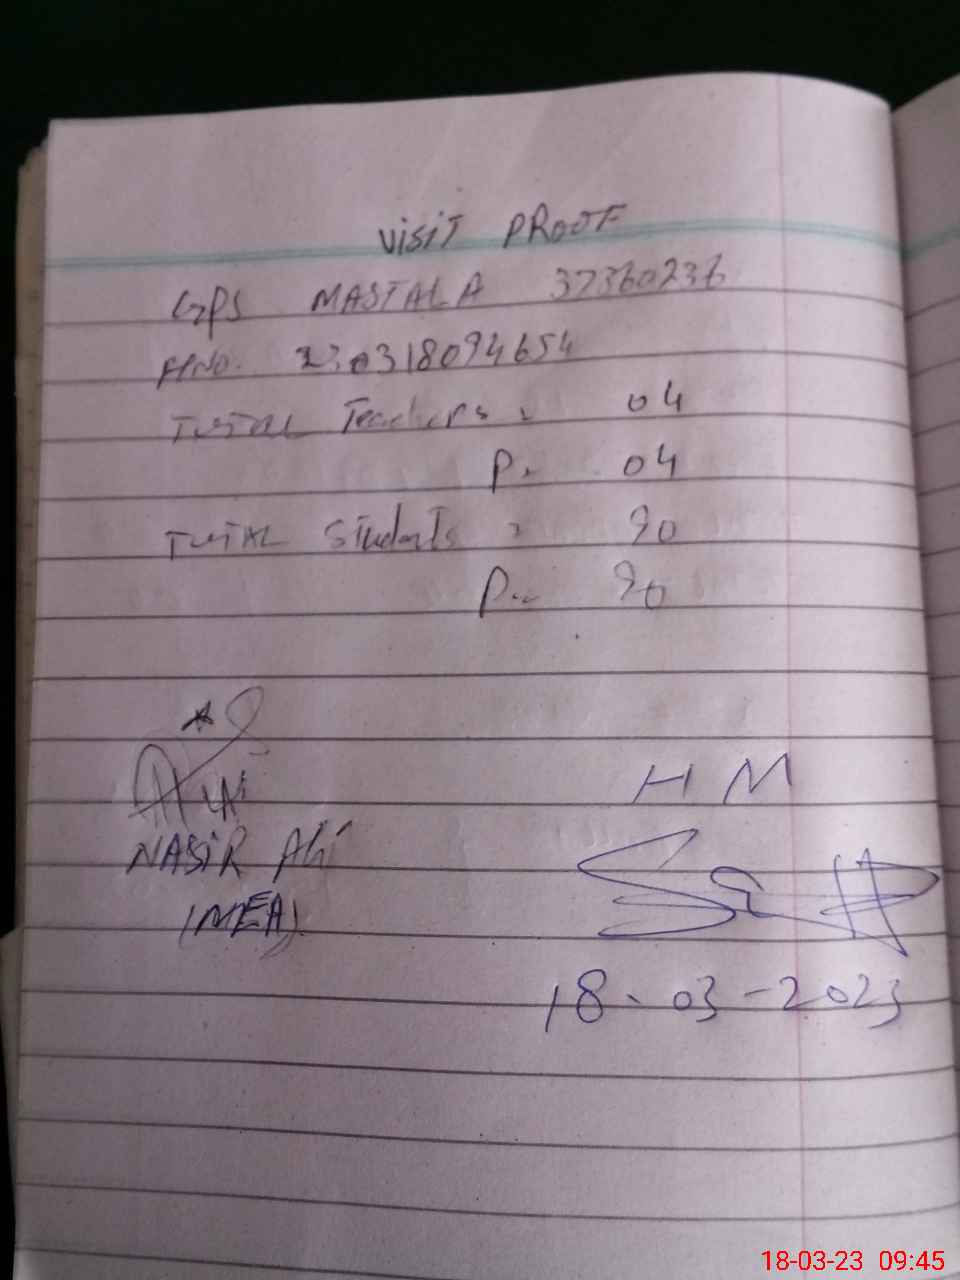 VISIT PROOF
GPS MASTALA 37360236
HNO. 230318094654
TOTAL Teachers = 04
P. 04
TOTAL Students = 90
P.. 90
NASIR Ali
(MEA)
HM
18-03-2023
18-03-23 09:45